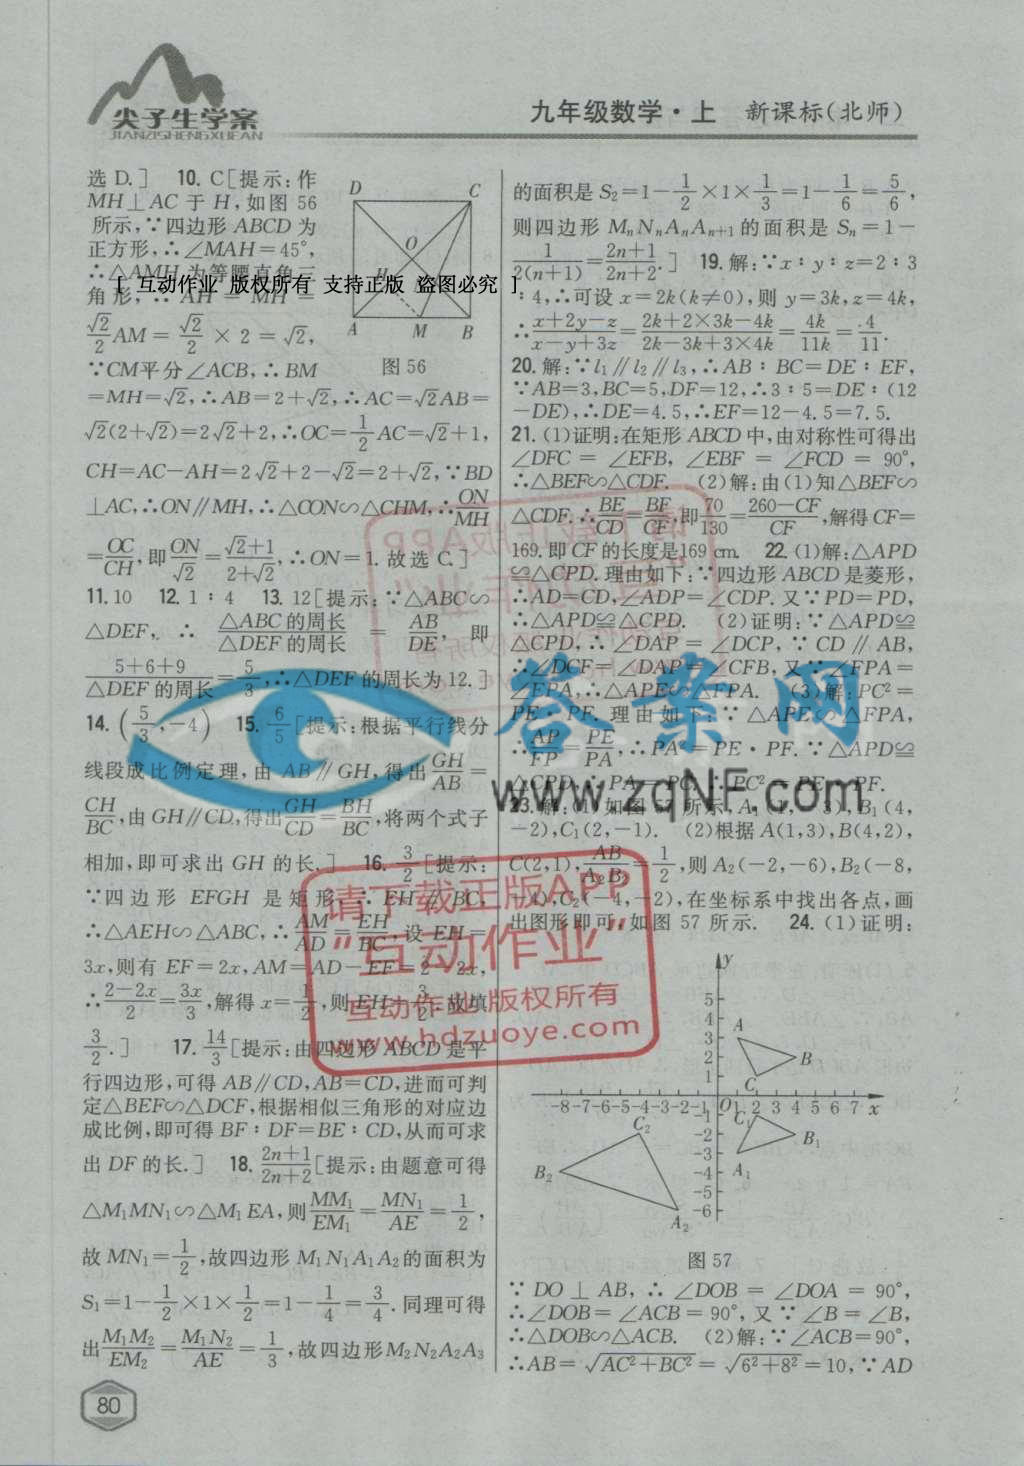 尖子生学案
JIANZISHENGXUEAN
九年级数学·上 新课标(北师)
选D.] 10. C[提示:作
MH⊥AC 于 H,如图 56
所示,∵四边形 ABCD 为
正方形,∴∠MAH=45°,
∴△AMH 为等腰直角三
[ 互动作业 版权所有 支持正版 盗图必究 ]
角形,∴AH=MH=
√2/2 AM=√2/2×2=√2,
∵CM平分∠ACB,∴BM
D C O H N A M B
图 56
=MH=√2,∴AB=2+√2,∴AC=√2AB=
√2(2+√2)=2√2+2,∴OC=1/2 AC=√2+1,
CH=AC-AH=2√2+2-√2=2+√2,∵BD
⊥AC,∴ON∥MH,∴△CON∽△CHM,∴ON/MH
=OC/CH,即ON/√2=(√2+1)/(2+√2),∴ON=1.故选 C.]
11. 10 12. 1∶4 13. 12[提示:∵△ABC∽
△DEF, ∴ △ABC的周长/△DEF的周长 = AB/DE, 即
(5+6+9)/△DEF的周长=5/3,∴△DEF的周长为12.]
14. (5/3,-4) 15. 6/5[提示:根据平行线分
线段成比例定理,由 AB∥GH,得出GH/AB=
CH/BC,由GH∥CD,得出GH/CD=BH/BC,将两个式子
相加,即可求出 GH 的长.] 16. 3/2[提示:
∵四边形 EFGH 是矩形,∴EH∥BC,
∴△AEH∽△ABC,∴AM/AD=EH/BC,设 EH=
3x,则有 EF=2x,AM=AD-EF=2-2x,
∴(2-2x)/2=3x/3,解得 x=1/2,则EH=3/2.故填
3/2.] 17. 14/3[提示:由四边形 ABCD 是平
行四边形,可得 AB∥CD,AB=CD,进而可判
定△BEF∽△DCF,根据相似三角形的对应边
成比例,即可得 BF∶DF=BE∶CD,从而可求
出 DF 的长.] 18. (2n+1)/(2n+2)[提示:由题意可得
△M₁MN₁∽△M₁EA,则MM₁/EM₁=MN₁/AE=1/2,
故 MN₁=1/2,故四边形 M₁N₁A₁A₂的面积为
S₁=1-1/2×1×1/2=1-1/4=3/4.同理可得
出M₁M₂/EM₂=M₁N₂/AE=1/3,故四边形M₂N₂A₂A₃
80
的面积是 S₂=1-1/2×1×1/3=1-1/6=5/6,
则四边形 MₙNₙAₙAₙ₊₁的面积是 Sₙ=1-
1/(2(n+1))=(2n+1)/(2n+2).] 19. 解:∵x∶y∶z=2∶3
∶4,∴可设 x=2k(k≠0),则 y=3k,z=4k,
∴(x+2y-z)/(x-y+3z)=(2k+2×3k-4k)/(2k-3k+3×4k)=4k/11k=4/11.
20. 解:∵l₁∥l₂∥l₃,∴AB∶BC=DE∶EF,
∵AB=3,BC=5,DF=12,∴3∶5=DE∶(12
-DE),∴DE=4.5,∴EF=12-4.5=7.5.
21. (1)证明:在矩形 ABCD 中,由对称性可得出
∠DFC=∠EFB, ∠EBF=∠FCD=90°,
∴△BEF∽△CDF. (2)解:由(1)知△BEF∽
△CDF.∴BE/CD=BF/CF,即70/130=(260-CF)/CF,解得 CF=
169.即 CF 的长度是169 cm. 22. (1)解:△APD
≌△CPD.理由如下:∵四边形 ABCD 是菱形,
∴AD=CD,∠ADP=∠CDP.又∵PD=PD,
∴△APD≌△CPD. (2)证明:∵△APD≌
△CPD,∴∠DAP=∠DCP,∵CD∥AB,
∴∠DCF=∠DAP=∠CFB,又∵∠FPA=
∠FPA,∴△APE∽△FPA. (3)解:PC²=
PE·PF. 理由如下:∵△APE∽△FPA,
∴AP/FP=PE/PA,∴PA²=PE·PF.∵△APD≌
△CPD,∴PA=PC,∴PC²=PE·PF.
23. 解:(1)如图 57 所示,A₁(1,-3),B₁(4,
-2),C₁(2,-1). (2)根据 A(1,3),B(4,2),
C(2,1),AB/A₂B₂=1/2,则 A₂(-2,-6),B₂(-8,
-4),C₂(-4,-2),在坐标系中找出各点,画
出图形即可,如图 57 所示. 24. (1)证明:
y
5
4
3
2
1
A B C
-8-7-6-5-4-3-2-1 O 1 2 3 4 5 6 7 x
-1
-2
-3
-4
-5
-6
C₁ B₁ A₁
C₂ B₂ A₂
图 57
∵DO⊥AB,∴∠DOB=∠DOA=90°,
∴∠DOB=∠ACB=90°,又∵∠B=∠B,
∴△DOB∽△ACB. (2)解:∵∠ACB=90°,
∴AB=√(AC²+BC²)=√(6²+8²)=10,∵AD
答案网
www.zqNF.com
请下载正版APP
"互动作业"
互动作业 版权所有
www.hdzuoye.com